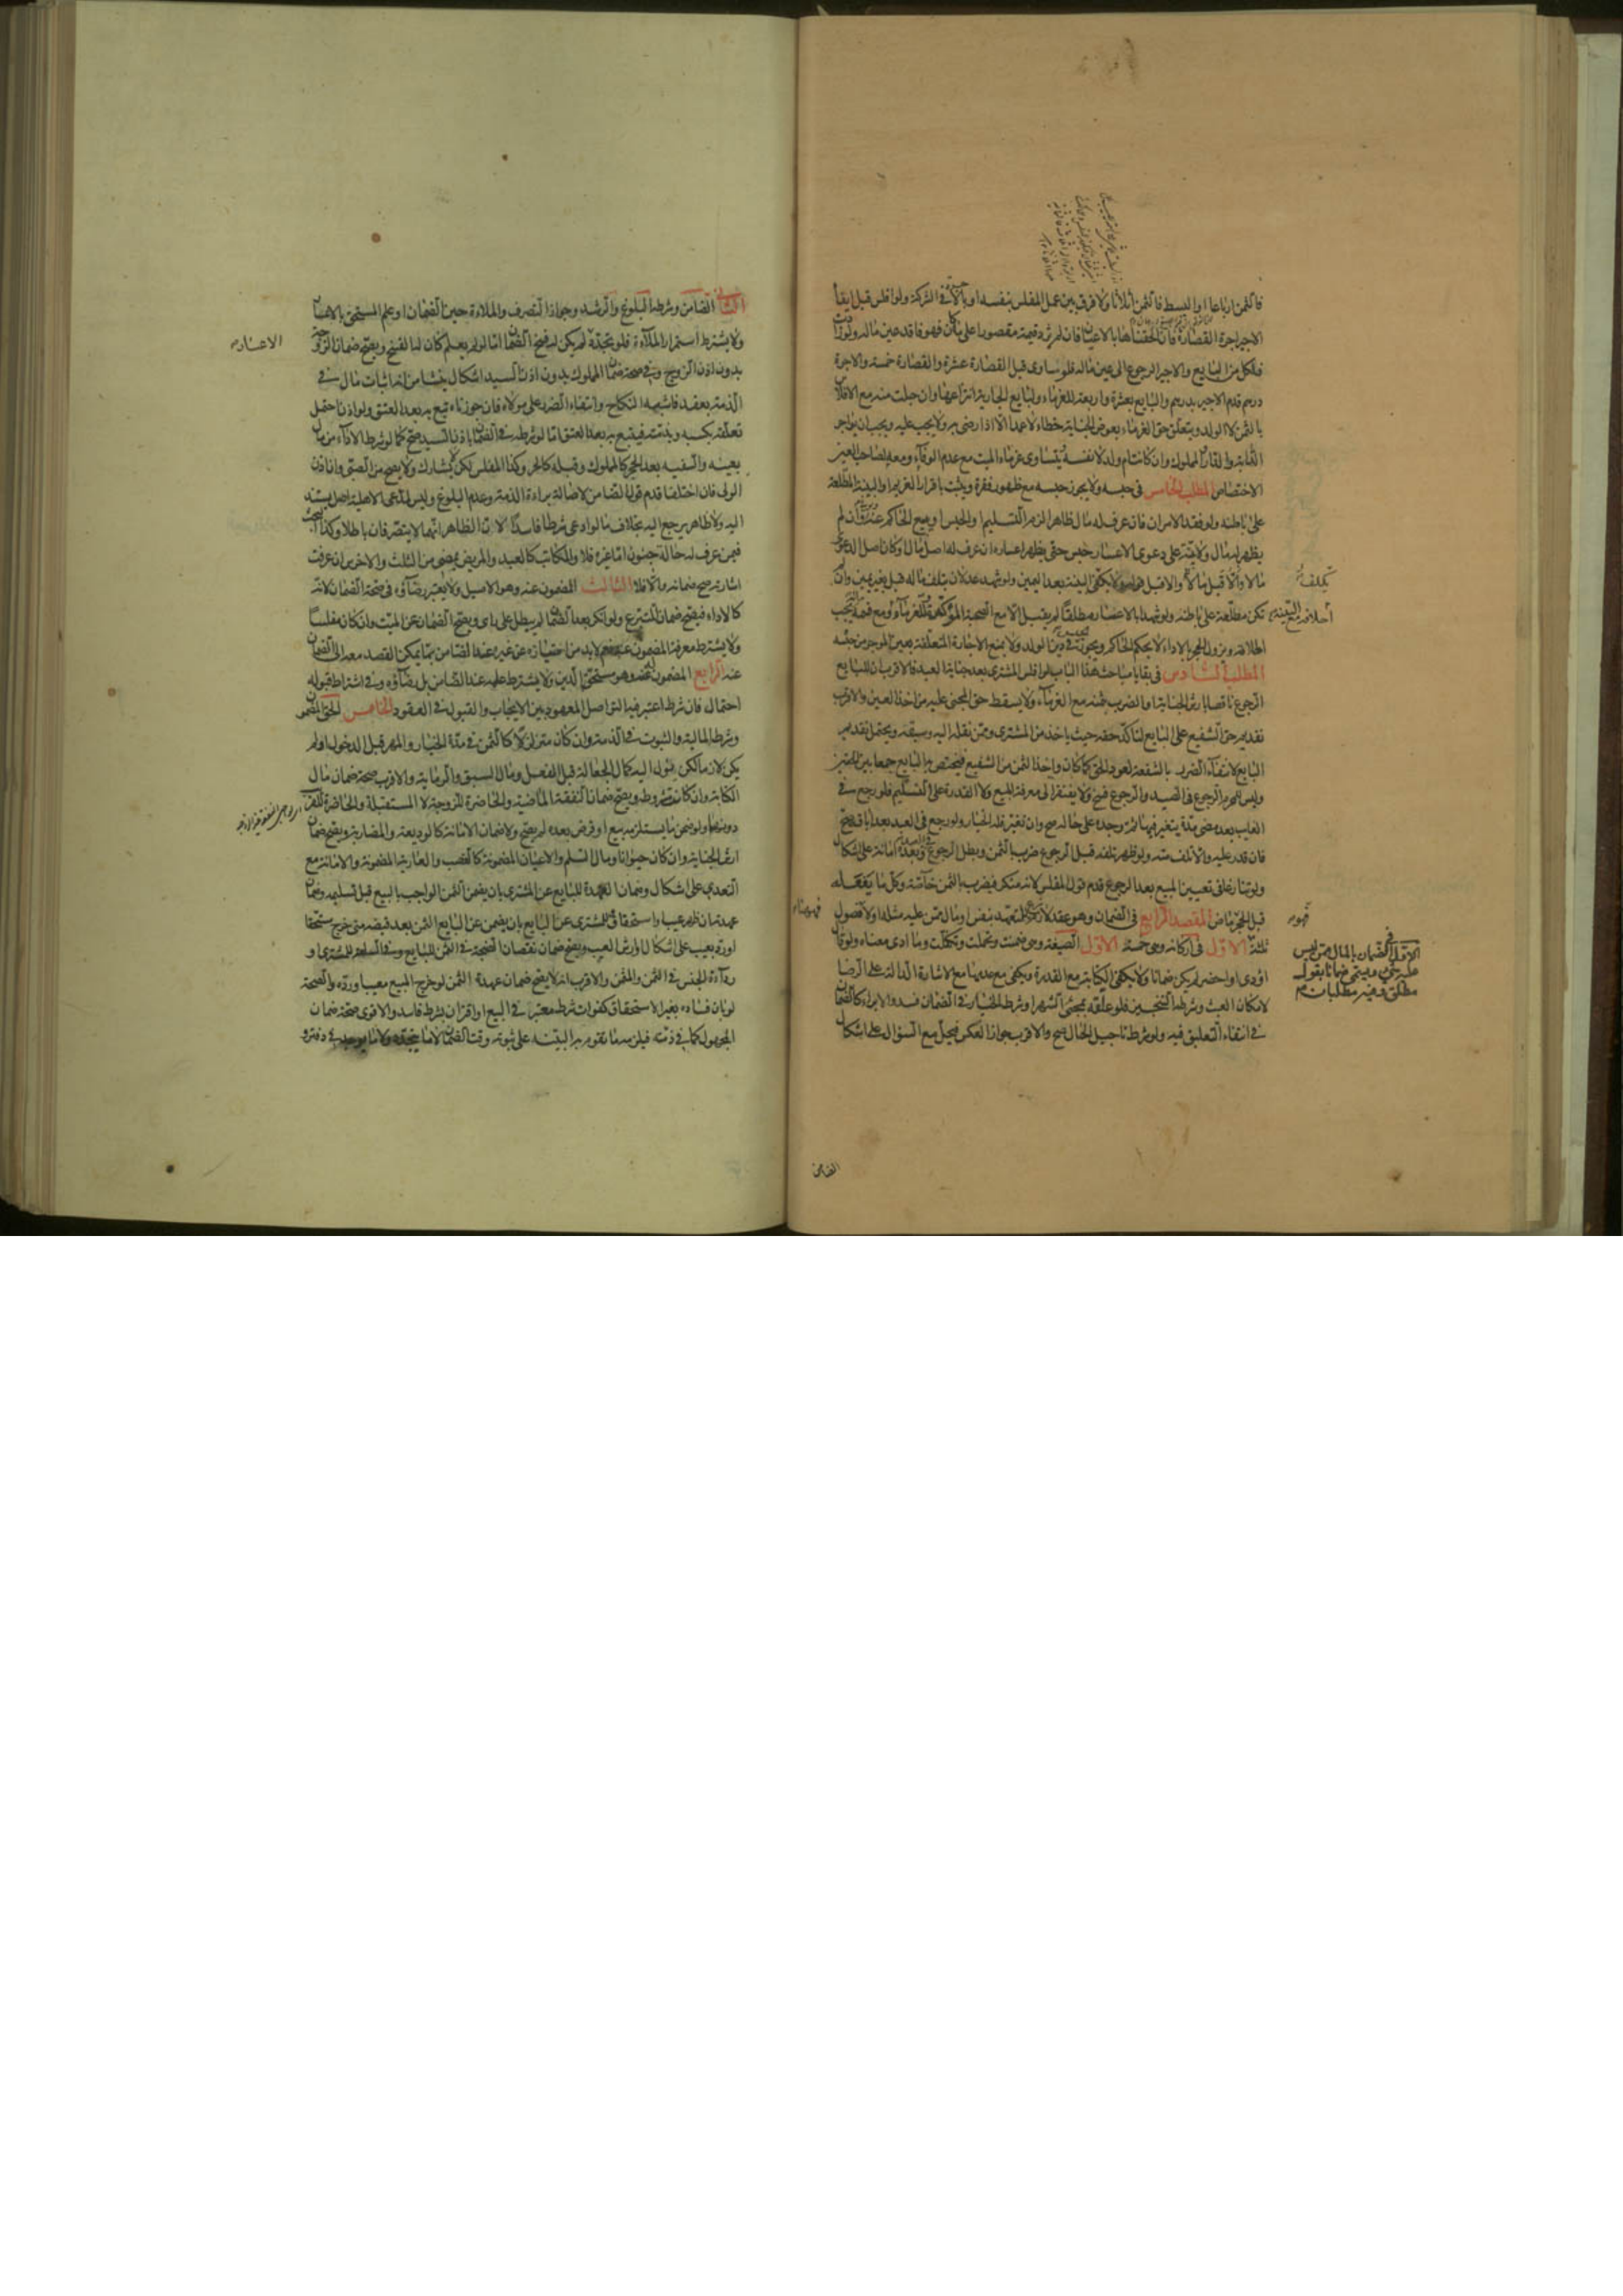 فالثمن ارباعا او البسط فالثمن أثلاثا ولا فرق بين عمل المفلس بنفسه او بالاجرة في الشركة ولو افلس قبل ايفاء
الاجير اجرة القصارة فان الحقناها بالاعيان فان لم تزد قيمته مقصورا على ما كان فهو فاقد عين ماله ولو زادت
فلكل من البايع والاجير الرجوع الى عين ماله فلو ساوى قبل القصارة عشرة والقصارة خمسة والاجرة
درهم قدم الاجير بدرهم والبايع بعشرة واربعة للغرماء ولبايع الجارية انتزاعها وان حبلت منه مع الافلاس
بالثمن لا الولد ويتعلق حق الغرماء بعوض الجناية خطاء لا عمدا الا اذا رضي به ولا يجب عليه ويجب ان يؤاجر
الدابة والدار والمملوك وان كانت ام ولد لا نفسه يتساوى غرماء الميت مع عدم الوفاء ومعه لصاحب العين
الاختصاص المطلب الخامس في حبسه ولا يجوز حبسه مع ظهور فقره ويثبت باقرار الغريم او البينة المطلعة
على باطنه ولو فقد الامران فان عرف له مال ظاهر الزم التسليم او الحبس او يبيع الحاكم عنه فان لم
يظهر له مال ولا بينة على دعوى الاعسار حبس حتى يظهر اعساره ان عرف له اصل مال او كان اصل الدعوى
مالا والا قبل
تكن مطلعة على باطنه ولو شهد بالاعسار مطلقا لم يقبل الا مع الصحبة المؤكدة
اطلاقه ويزول الحجر بالاداء لا بحكم الحاكم ويجوز في دين الولد ولا يمنع الاجارة المتعلقة بعين الموجر من حبسه
المطلب السادس في بقايا مباحث هذا الباب لو افلس المشتري بعد جناية العبد فالاقرب ان للبايع
الرجوع ناقصا بارش الجناية او الضرب بثمنه مع الغرماء ولا يسقط حق المجني عليه من اخذ العين والاقرب
تقديم حق الشفيع على البايع لتاكد حقه حيث ياخذ من المشتري وممن نقله اليه وسبقه ويحتمل تقديم
البايع لانتفاء الضرر بالشفعة لعود الحق كما كان واخذ الثمن من الشفيع فيختص به البايع جمعا بين الحقين
وليس للمحرم الرجوع في الصيد والرجوع فسخ ولا يفتقر الى معرفة المبيع ولا القدرة على التسليم فلو رجع في
الغايب بعد مضي مدة يتغير فيها ثم وجده على حاله صح وان تغير فله الخيار ولو رجع في العبد بعد اباقه صح
فان قدر عليه والا تلف منه ولو ظهر تلفه قبل الرجوع ضرب بالثمن وبطل الرجوع
ولو تنازعا في تعيين المبيع بعد الرجوع قدم قول المفلس لانه منكر فيضرب بالثمن خاصة وكل ما يفعله
قبل الحجر ماض المقصد الرابع في الضمان وهو عقد شرع للتعهد بنفس او مال ممن عليه مثله او لا وفصوله
ثلثة الاول في اركانه وهي خمسة الاول الصيغة وهي ضمنت وتحملت وتكفلت وما ادى معناه ولو قال
اؤدي او احضر لم يكن ضمانا ولا يكفي الكتابة مع القدرة ويكفي مع عدمها مع الاشارة الدالة على الرضا
لامكان العبث وشرطه التنجيز فلو علقه بمجيء الشهر او شرط الخيار في الضمان فسد والابراء كالضمان
في انتفاء التعليق فيه ولو شرط تاجيل الحال صح والاقرب جواز العكس فيحل مع السؤال على اشكال
الاول الضمان بالمال ممن ليس
عليه شيء ويسمى ضمانا بقول
مطلق وفيه مطلبان
الضامن
الثاني الضامن وشرطه البلوغ والرشد وجواز التصرف والملاءة حين الضمان او علم المستحق بالاعسار
الاعسار
ولا يشترط استمرار الملاءة فلو تجدد لم يكن له فسخ الضمان اما لو لم يعلم كان له الفسخ ويصح ضمان الزوجة
بدون اذن الزوج وفي صحة ضمان المملوك بدون اذن السيد اشكال ينشا من انه اثبات مال في
الذمة بعقد فاشبه النكاح وانتفاء الضرر على مولاه فان جوزناه تبع به بعد العتق ولو اذن احتمل
تعلقه بكسبه وبذمته فيتبع به بعد العتق اما لو شرطه في الضمان باذن السيد صح كما لو شرط الاداء من مال
بعينه والسفيه بعد الحجر كالمملوك وقبله كالحر وكذا المفلس لكن لا يشارك ولا يصح من الصبي وان اذن
الولي فان اختلفا قدم قول الضامن لاصالة براءة الذمة وعدم البلوغ وليس لمدعي الاهلية اصل يستند
اليه ولا ظاهر يرجع اليه بخلاف ما لو ادعى شرطا فاسدا لان الظاهر انهما لا يتصرفان باطلا وكذا البحث
فيمن عرف له حالة جنون اما غيره فلا والمكاتب كالعبد والمريض يمضي من الثلث والاخرس ان عرفت
اشارته صح ضمانه والا فلا الثالث المضمون عنه وهو الاصيل ولا يعتبر رضاؤه في صحة الضمان لانه
كالاداء فيصح ضمان المتبرع ولو انكر بعد الضمان لم يبطل على راي ويصح الضمان عن الميت وان كان مفلسا
ولا يشترط معرفة المضمون عنه نعم لا بد من امتيازه عن غيره عند الضامن بما يمكن القصد معه الى الضمان
عنه الرابع المضمون له وهو مستحق الدين ولا يشترط علمه عند الضامن بل رضاؤه وفي اشتراط قبوله
احتمال فان شرط اعتبر فيه التواصل المعهود بين الايجاب والقبول في العقود الخامس الحق المضمون
وشرطه المالية والثبوت في الذمة وان كان متزلزلا كالثمن في مدة الخيار والمهر قبل الدخول او لم
يكن لازما لكن يؤول اليه كمال الجعالة قبل الفعل ومال السبق والرماية والاقرب صحة ضمان مال
الكتابة وان كانت مشروطة ويصح ضمان النفقة الماضية والحاضرة للزوجة لا المستقبلة
دونهما ولو ضمن ما يستلزمه ببيع او قرض بعده لم يصح ولا ضمان الامانة كالوديعة والمضاربة ويصح ضمان
ارش الجناية وان كان حيوانا ومال السلم والاعيان المضمونة كالغصب والعارية المضمونة والامانة مع
التعدي على اشكال وضمان العهدة للبايع عن المشتري بان يضمن الثمن الواجب بالبيع قبل تسليمه وضمان
عهدته ان ظهر عيب او استحقاق وللمشتري عن البايع بان يضمن عن البايع الثمن بعد قبضه متى خرج مستحقا
او رد بعيب على اشكال او ارش العيب ويصح ضمان نقصان الصنجة في الثمن للبايع وفي السلعة للمشتري او
رداءة الجنس في الثمن والمثمن والاقرب انه لا يصح ضمان عهدة الثمن لو خرج المبيع معيبا ورده والصحة
لو بان فساده بغير الاستحقاق كفوات شرط معتبر في البيع او اقتران شرط فاسد والاقوى صحة ضمان
المجهول كما في ذمته فيلزمه ما تقوم به البينة على ثبوته وقت الضمان لا ما يتجدد ولا ما يوجد في دفتر و